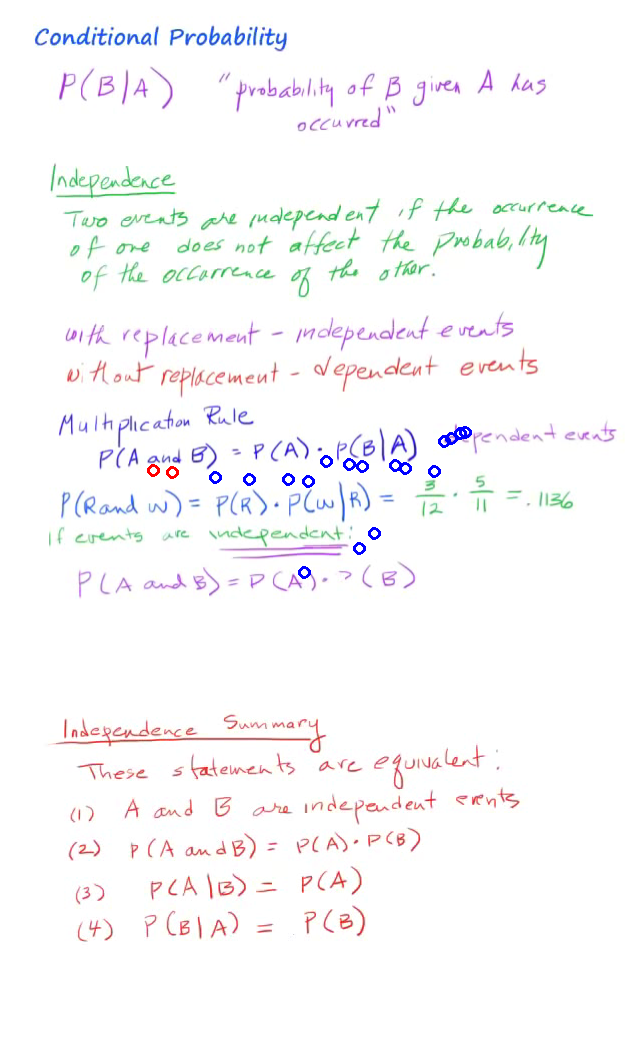 Conditional Probability
P(B|A) "probability of B given A has
occurred"
Independence
Two events are independent if the occurrence
of one does not affect the probability
of the occurrence of the other.
with replacement - independent events
without replacement - dependent events
Multiplication Rule
P(A and B) = P(A) · P(B|A) events
P(R and W) = P(R) · P(W|R) = 3/12 · 5/11 = .1136
if events are independent:
P(A and B) = P(A) · (B)
Independence Summary
These statements are equivalent:
(1) A and B are independent events
(2) P(A and B) = P(A) · P(B)
(3) P(A|B) = P(A)
(4) P(B|A) = P(B)